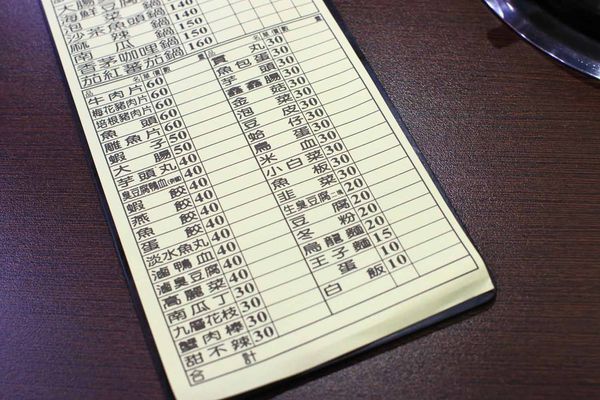 大腸 鍋 140
海鮮 鍋 140
泡 鍋 140
沙茶魚頭鍋 140
麻辣鍋 150
南瓜鍋 140
香茅咖哩鍋 150
茄紅蕃茄鍋 160
品名 單價 數量
牛肉片 60
梅花豬肉片 60
培根豬肉片 60
魚頭 60
雕魚片 60
蝦子 50
大腸 50
芋頭丸 40
臭豆腐鴨血 40
蝦餃 40
燕餃 40
魚餃 40
蛋餃 40
淡水魚丸 40
滷鴨血 40
滷臭豆腐 40
高麗菜 30
南瓜丁 30
九層花枝 30
蟹肉棒 30
甜不辣 30
合計
品名 單價 數量
貢丸 30
魚包蛋 30
芋頭 30
鑫鑫腸 30
金菇 30
泡菜 30
豆皮 30
蛤仔 30
鳥蛋 30
米血 30
小白菜 30
魚板 30
韮菜 30
生臭豆腐 20
豆腐 20
冬粉 20
烏龍麵 20
王子麵 15
蛋 10
白飯 10